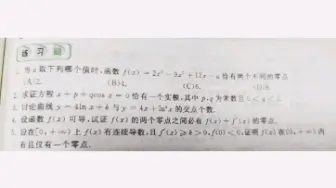 练习题
1. 当 a 取下列哪个值时,函数 f(x) = 2x³ − 9x² + 12x − a 恰有两个不同的零点
(A)2. (B)4. (C)6. (D)8.
2. 求证方程 x + p + q cos x = 0 恰有一个实根,其中 p, q 为常数且
3. 讨论曲线 y = 4ln x + k 与 y = 4x + ln⁴x 的交点个数.
4. 设函数 f(x) 可导,试证 f(x) 的两个零点之间必有 f(x) + f′(x) 的零点.
5. 设在[0, +∞) 上 f(x) 有连续导数,且 f′(x) ≥ k > 0, f(0) < 0,证明 f(x) 在(0, +∞) 内
有且仅有一个零点.